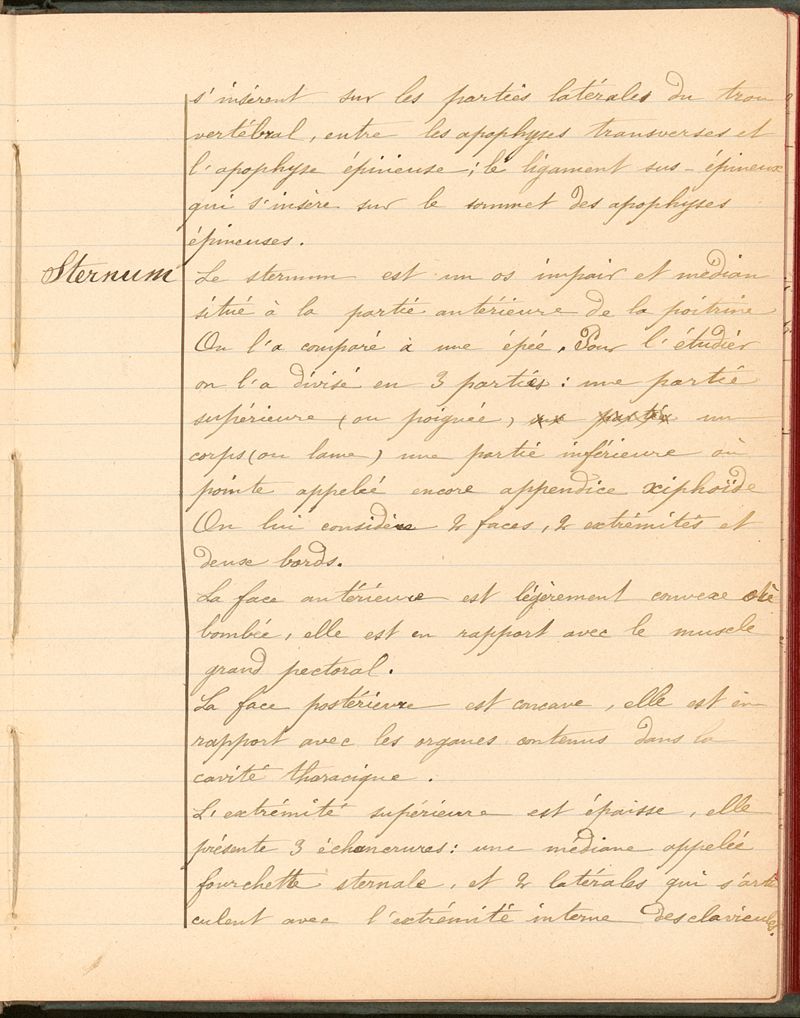 s'insèrent sur les parties latérales du trou
vertébral, entre les apophyses transverses et
l'apophyse épineuse ; le ligament sus-épineux
qui s'insère sur le sommet des apophyses
épineuses.
Sternum
Le sternum est un os impair et médian
situé à la partie antérieure de la poitrine
On l'a comparé à une épée. Pour l'étudier
on l'a divisé en 3 parties : une partie
supérieure (ou poignée) un
corps (ou lame) une partie inférieure où
pointe appelée encore appendice xiphoïde
On lui considère 2 faces, 2 extrémités et
deux bords.
La face antérieure est légèrement convexe
bombée, elle est en rapport avec le muscle
grand pectoral.
La face postérieure est concave, elle est en
rapport avec les organes contenus dans la
cavité thoracique.
L'extrémité supérieure est épaisse, elle
présente 3 échancrures : une médiane appelée
fourchette sternale, et 2 latérales qui s'arti
culent avec l'extrémité interne des clavicules.